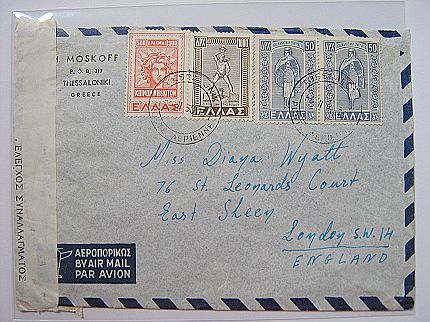 H. MOSKOFF
P. O. B. 317
THESSALONIKI
GREECE
500 ΔΡΑΧΜΑΙ 500
ΚΟΙΝ. ΔΩΔΕΚΑΝΗΣΩΝ
ΕΛΛΑΣ
ΕΛΛΑΣ
50
ΕΛΛΑΣ
50
ΕΛΛΑΣ
AERIENNE
Miss Diana Wyatt
76 St. Leonards Court
East Sheen
London S.W. 14
ENGLAND
ΕΛΕΓΧΟΣ ΣΥΝΑΛΛΑΓΜΑΤΟΣ
ΑΕΡΟΠΟΡΙΚΩΣ
BY AIR MAIL
PAR AVION